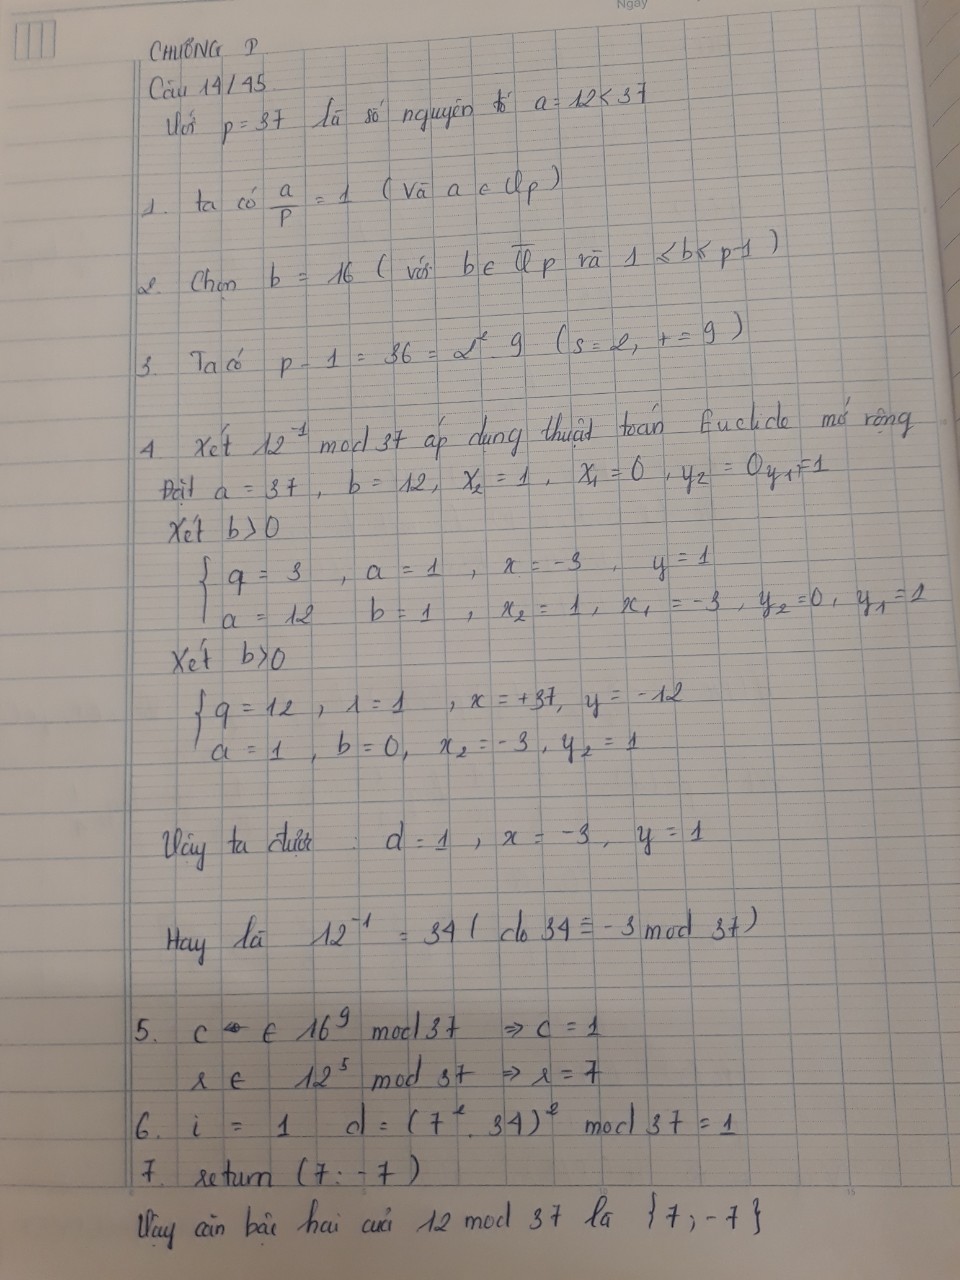 Ngày
CHƯƠNG
Câu 14/45
Với p = 37 là số nguyên tố a = 12 < 37
1. ta có a/p = 1 (và a ∈ Qp)
2. Chọn b = 16 (với b ∈ Q̅p và 1 < b < p-1)
3. Ta có p - 1 = 36 = 2² 9 (s = 2, t = 9)
4 Xét 12⁻¹ mod 37 áp dụng thuật toán Euclide mở rộng
Đặt a = 37, b = 12, x₂ = 1, x₁ = 0, y₂ = 0, y₁ = 1
Xét b > 0
{ q = 3, a = 1, x = -3, y = 1
a = 12 b = 1, x₂ = 1, x₁ = -3, y₂ = 0, y₁ = 1
Xét b > 0
{ q = 12, r = 1, x = +37, y = -12
a = 1, b = 0, x₂ = -3, y₂ = 1
Vậy ta được : d = 1, x = -3, y = 1
Hay là 12⁻¹ = 34 (do 34 ≡ -3 mod 37)
5. c ← ∈ 16⁹ mod 37 ⇒ c = 1
r ∈ 12⁵ mod 37 ⇒ r = 7
6. i = 1 d = (7². 34)² mod 37 = 1
7. return (7: -7)
Vậy căn bậc hai của 12 mod 37 là {7; -7}